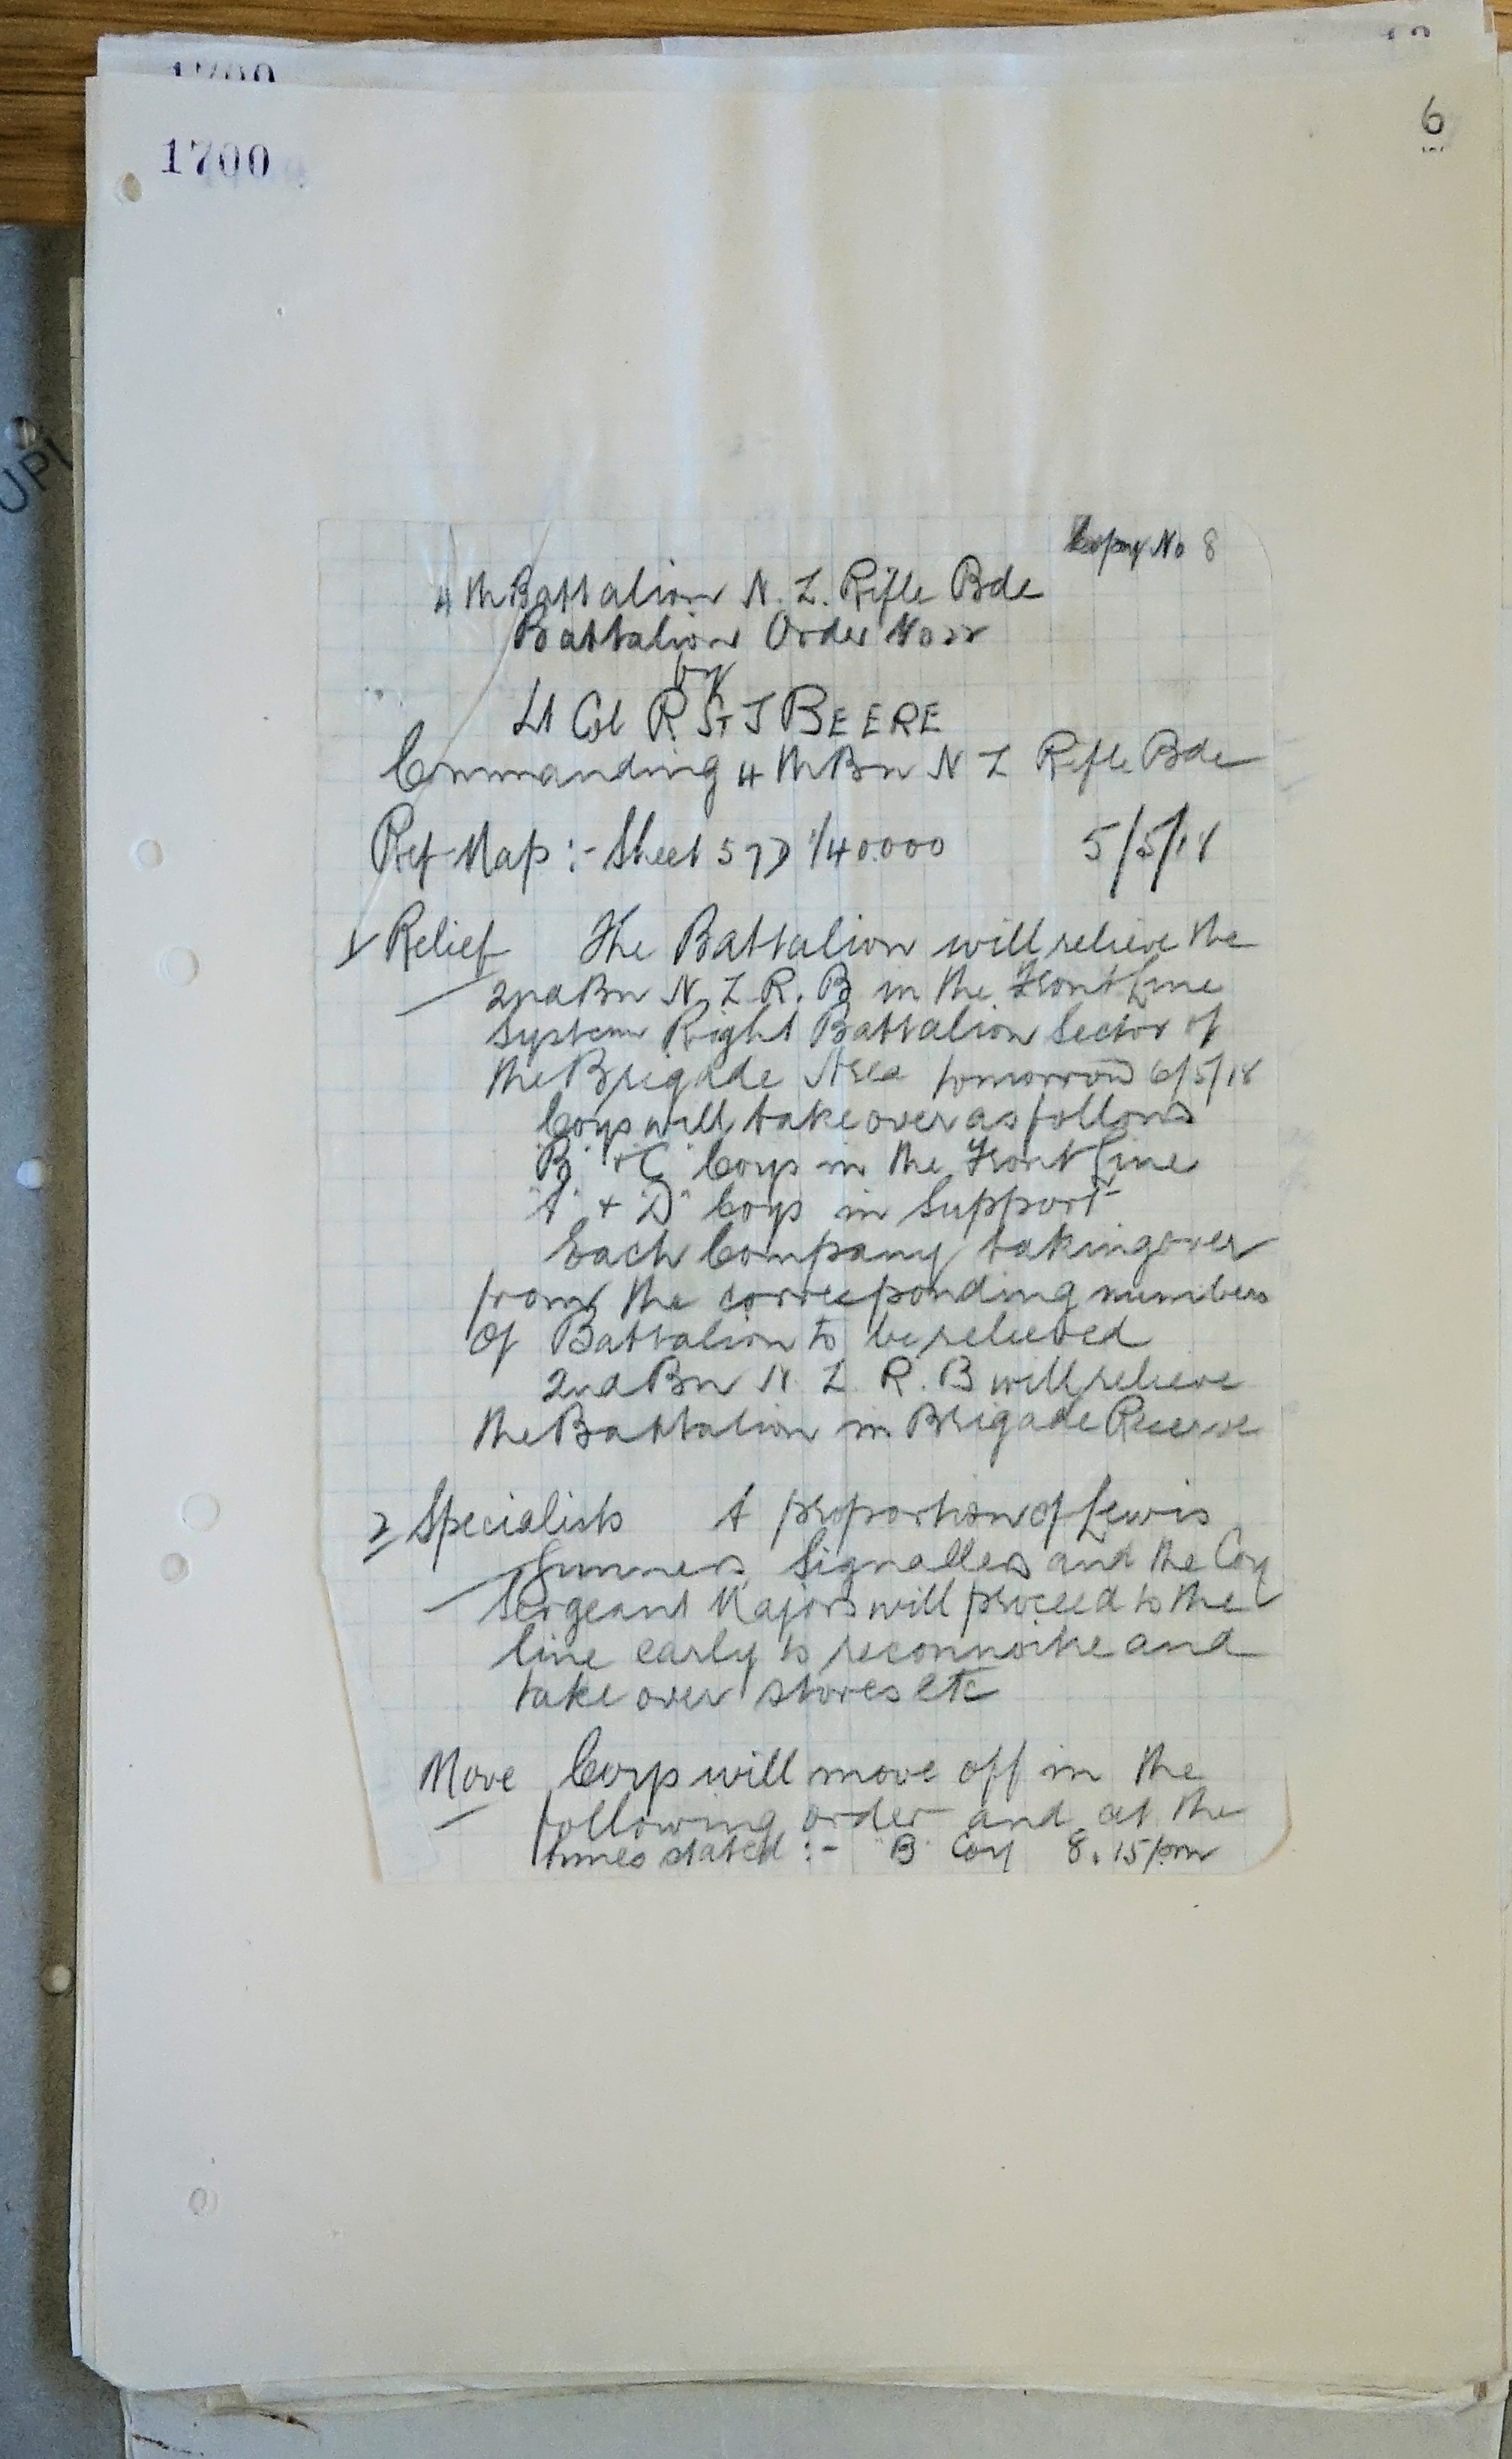 1700
6
UPL
Copy No 8
4th Battalion N. Z. Rifle Bde
Battalion Order No 22
by
Lt Col R. St J BEERE
Commanding 4th Bn N Z Rifle Bde
Ref Map :- Sheet 57D 1/40000 5/5/18
1 Relief The Battalion will relieve the
2nd Bn N. Z. R. B in the Front Line
System Right Battalion Sector of
the Brigade Area tomorrow 6/5/18
Coys will take over as follows
"B" + "C" Coys in the Front Line
"A" + "D" Coys in Support
Each Company taking over
from the corresponding numbers
of Battalion to be relieved
2nd Bn N. Z. R. B will relieve
the Battalion in Brigade Reserve
2 Specialists A proportion of Lewis
Gunners, Signallers and the Coy
Sergeant Majors will proceed to the
line early to reconnoitre and
take over stores etc
Move Coys will move off in the
following order and at the
times stated :- "B" Coy 8.15 pm